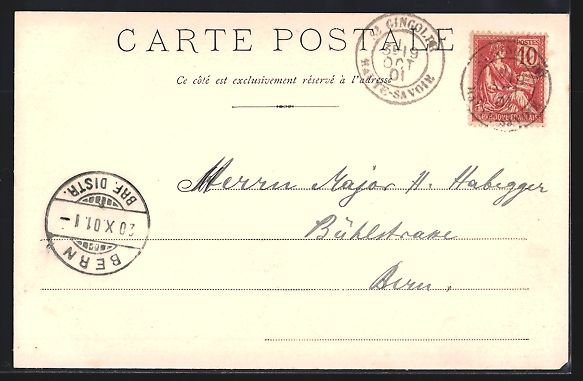 CARTE POSTALE
Ce côté est exclusivement réservé à l'adresse
ST GINGOLPH
19
OCT
01
HTE-SAVOIE
POSTES
10
Herrn Major H. Habegger
Bühlstrasse
Bern.
BRF. DISTR.
20.X.01.1-
BERN